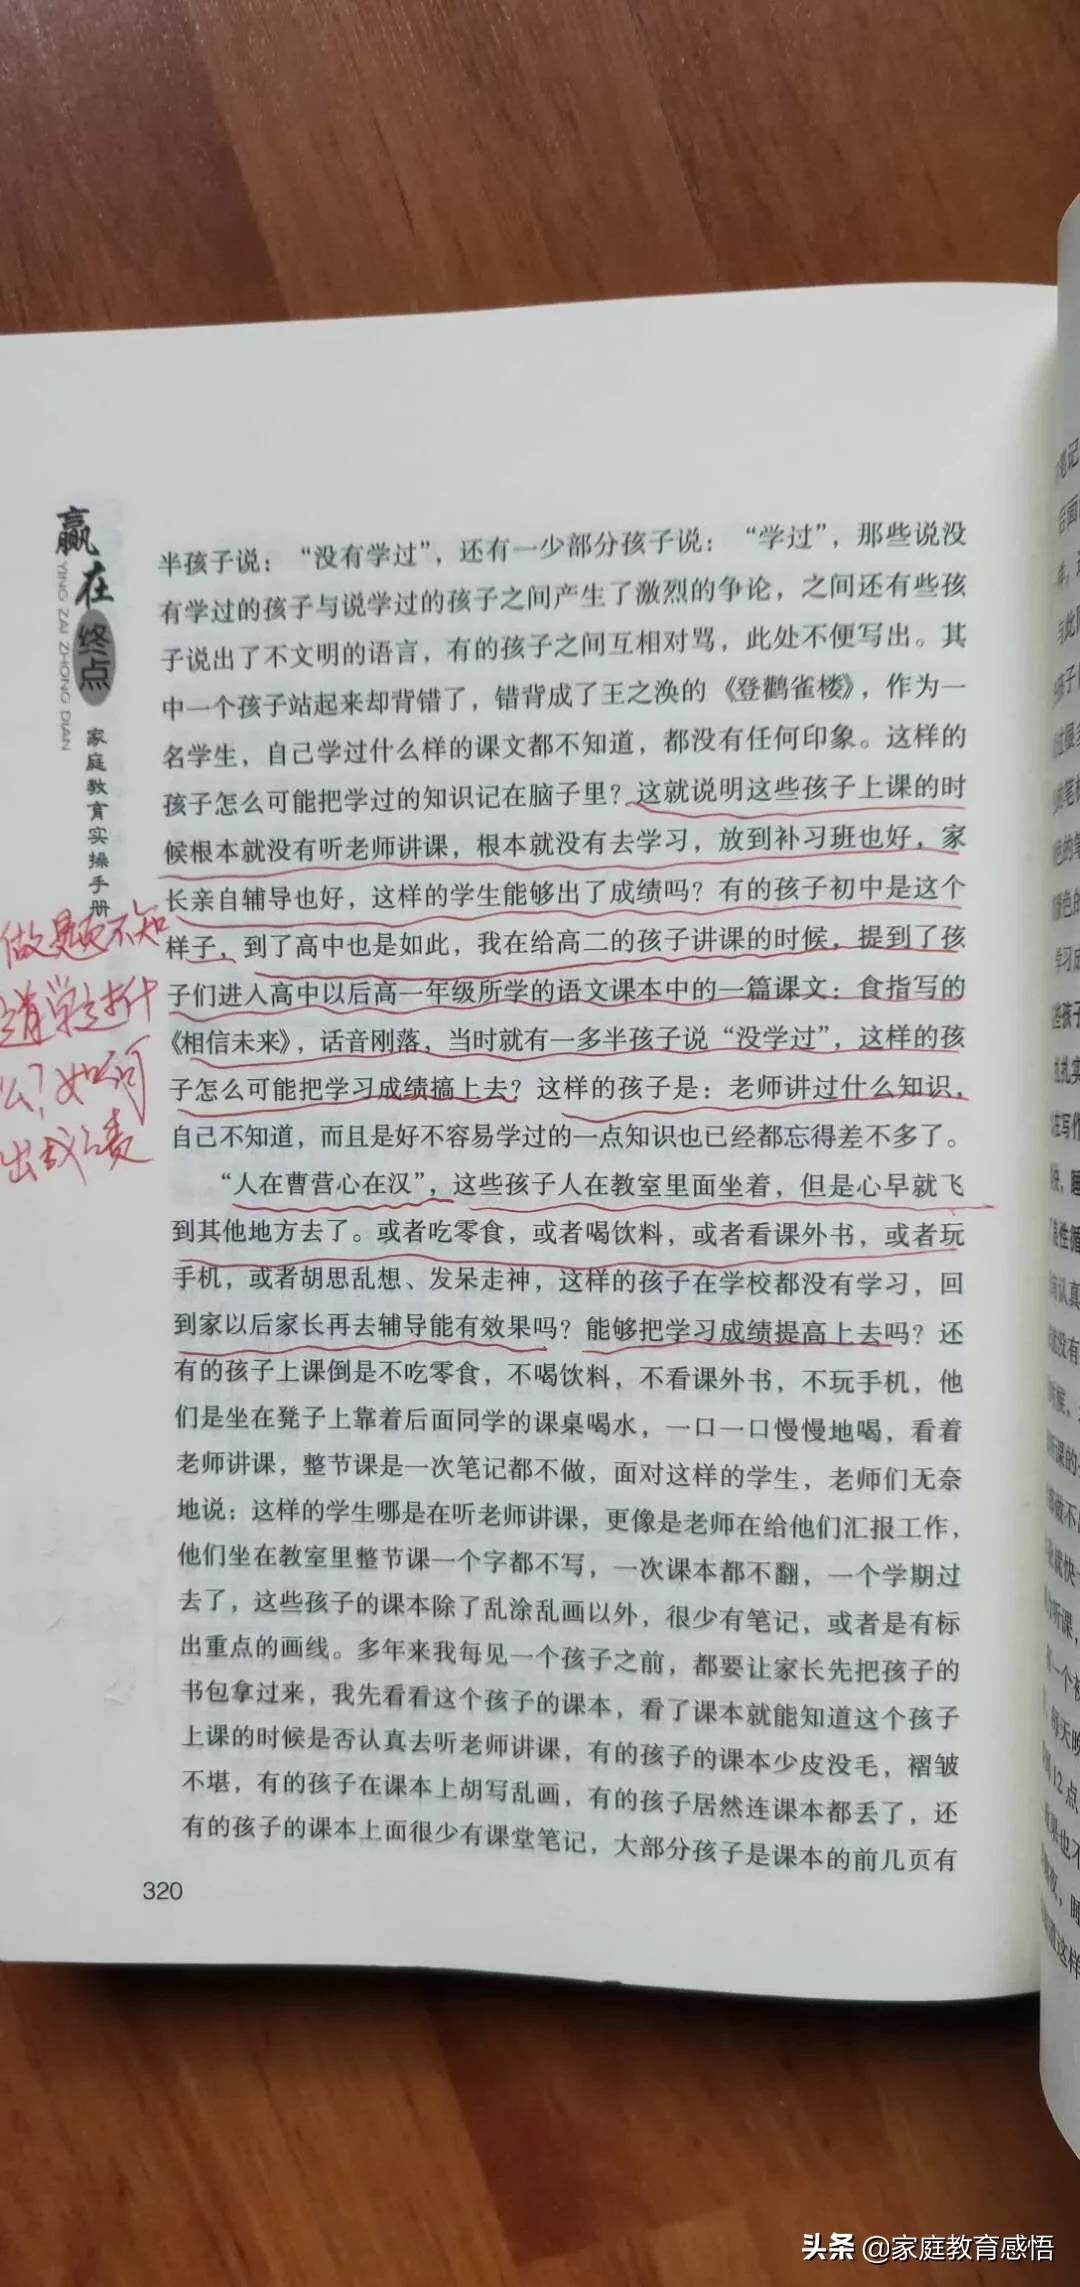 赢在终点
YING ZAI ZHONG DIAN
家庭教育实操手册
半孩子说：“没有学过”，还有一少部分孩子说：“学过”，那些说没
有学过的孩子与说学过的孩子之间产生了激烈的争论，之间还有些孩
子说出了不文明的语言，有的孩子之间互相对骂，此处不便写出。其
中一个孩子站起来却背错了，错背成了王之涣的《登鹳雀楼》，作为一
名学生，自己学过什么样的课文都不知道，都没有任何印象。这样的
孩子怎么可能把学过的知识记在脑子里？这就说明这些孩子上课的时
候根本就没有听老师讲课，根本就没有去学习，放到补习班也好，家
长亲自辅导也好，这样的学生能够出了成绩吗？有的孩子初中是这个
样子，到了高中也是如此，我在给高二的孩子讲课的时候，提到了孩
子们进入高中以后高一年级所学的语文课本中的一篇课文：食指写的
《相信未来》，话音刚落，当时就有一多半孩子说“没学过”，这样的孩
子怎么可能把学习成绩搞上去？这样的孩子是：老师讲过什么知识，
自己不知道，而且是好不容易学过的一点知识也已经都忘得差不多了。
“人在曹营心在汉”，这些孩子人在教室里面坐着，但是心早就飞
到其他地方去了。或者吃零食，或者喝饮料，或者看课外书，或者玩
手机，或者胡思乱想、发呆走神，这样的孩子在学校都没有学习，回
到家以后家长再去辅导能有效果吗？能够把学习成绩提高上去吗？还
有的孩子上课倒是不吃零食，不喝饮料，不看课外书，不玩手机，他
们是坐在凳子上靠着后面同学的课桌喝水，一口一口慢慢地喝，看着
老师讲课，整节课是一次笔记都不做，面对这样的学生，老师们无奈
地说：这样的学生哪是在听老师讲课，更像是老师在给他们汇报工作，
他们坐在教室里整节课一个字都不写，一次课本都不翻，一个学期过
去了，这些孩子的课本除了乱涂乱画以外，很少有笔记，或者是有标
出重点的画线。多年来我每见一个孩子之前，都要让家长先把孩子的
书包拿过来，我先看看这个孩子的课本，看了课本就能知道这个孩子
上课的时候是否认真去听老师讲课，有的孩子的课本少皮没毛，褶皱
不堪，有的孩子在课本上胡写乱画，有的孩子居然连课本都丢了，还
有的孩子的课本上面很少有课堂笔记，大部分孩子是课本的前几页有
320
做题不知
道学过什
么？如何
出成绩
头条 @家庭教育感悟